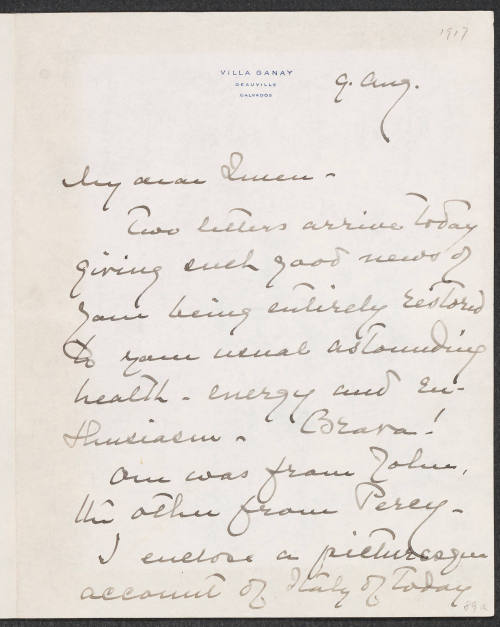 1917
VILLA GANAY
DEAUVILLE
CALVADOS
9. Aug.
My dear Queen -
Two letters arrive today
giving such good news of
your being entirely restored
to your usual astounding
health - energy and en-
thusiasm - Brava!
One was from John,
the other from Percy -
I enclose a picturesque
account of Italy of today
89a